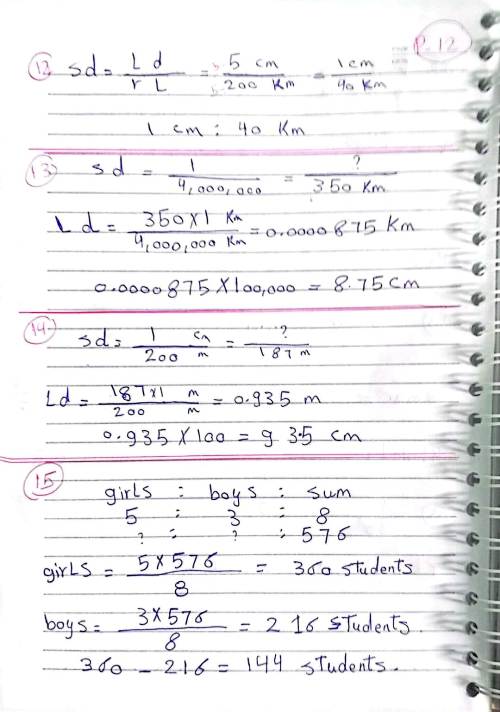 P. 12
12 sd = L d / r L = 5 cm / 200 Km = 1 cm / 40 Km
1 cm : 40 Km
13 sd = 1 / 4,000,000 = ? / 350 Km
L d = 350 x 1 Km / 4,000,000 Km = 0.0000875 Km
0.0000875 X 100,000 = 8.75 cm
14 sd = 1 cm / 200 m = ? / 187 m
Ld = 187 x 1 m / 200 m = 0.935 m
0.935 X 100 = 93.5 cm
15
girls : boys : sum
5 : 3 : 8
? : ? : 576
girls = 5 x 576 / 8 = 360 students
boys = 3 x 576 / 8 = 216 students.
360 - 216 = 144 students.